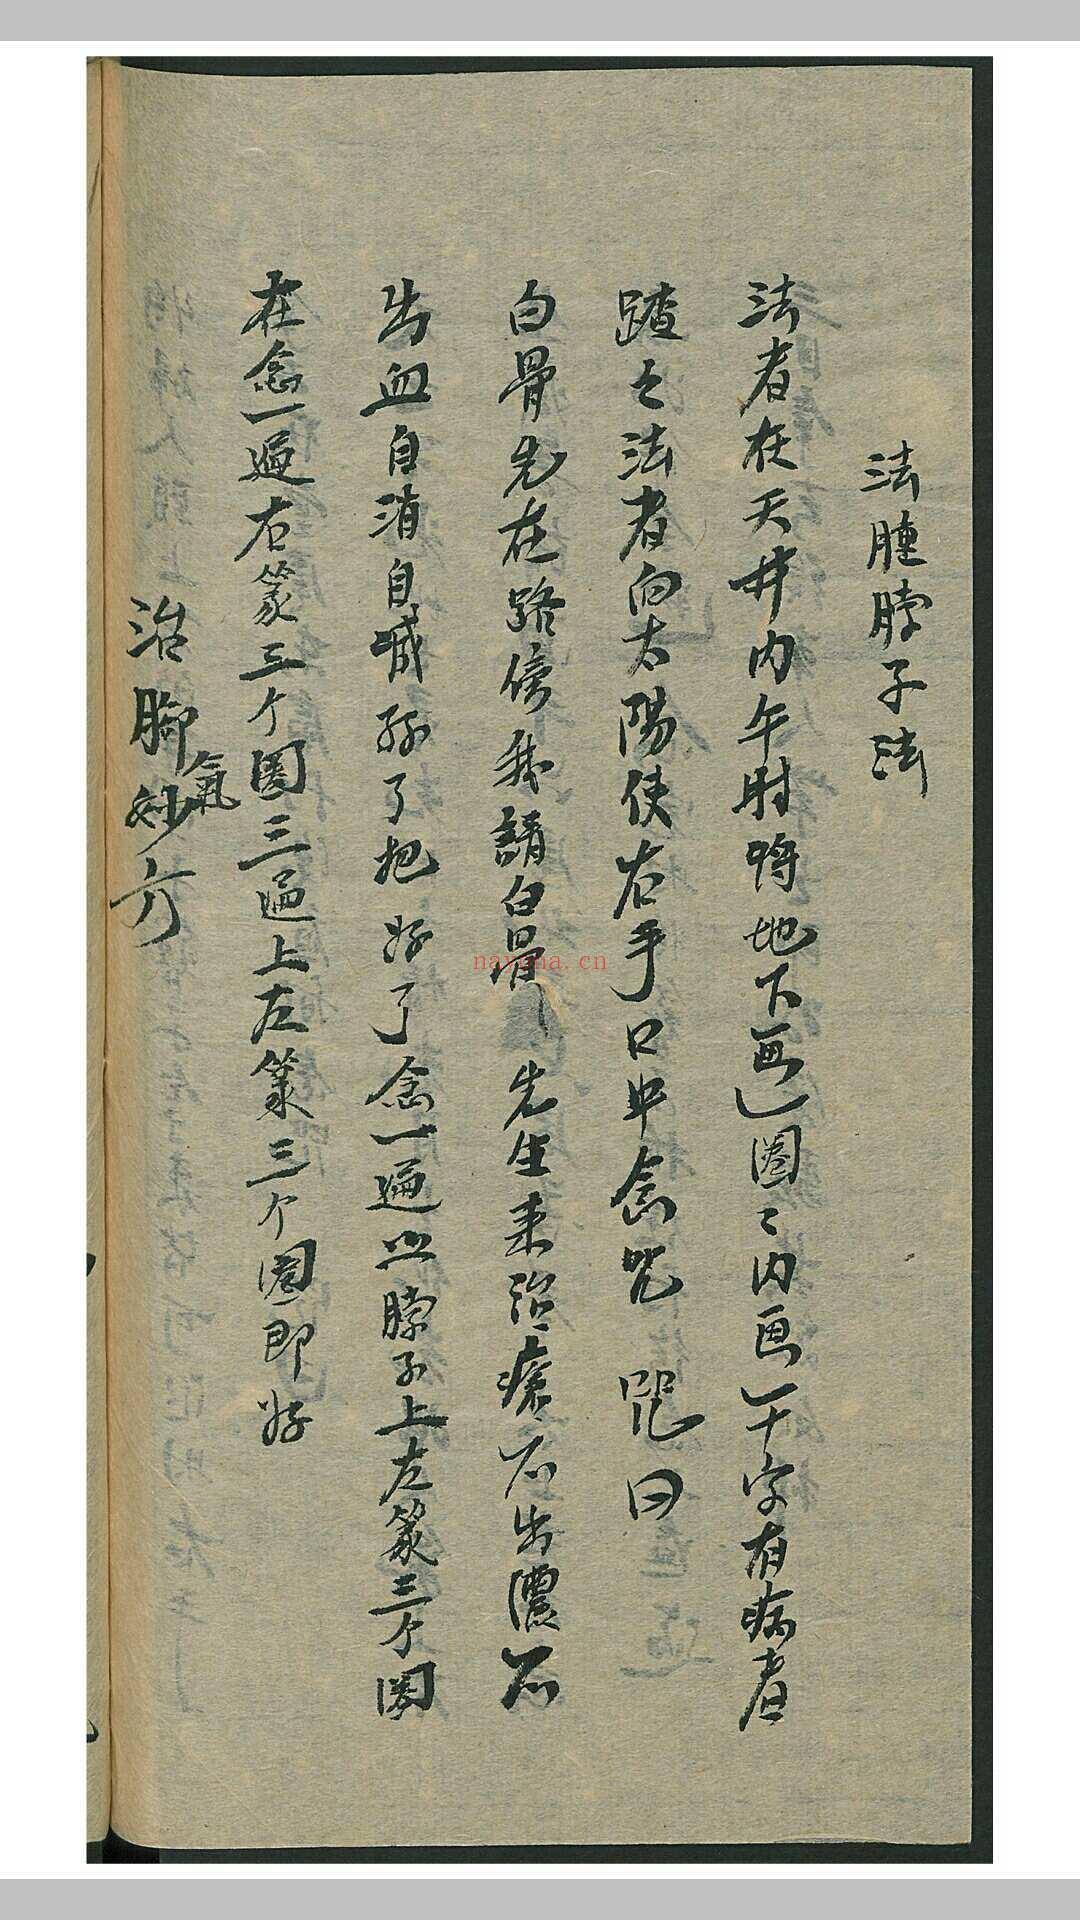 法腫脖子法
法者在天井内午時將地下画一圈〻内画一十字有病者
踏之法者向太陽使右手口中念咒 咒曰
白骨先在路傍我請白骨 先生来治瘡不出濃不
出血自消自滅好了把好了念一遍照脖子上左篆三个圈
在念一遍右篆三个圈三遍上左篆三个圈即好
治脚氣妙方
nayona.cn